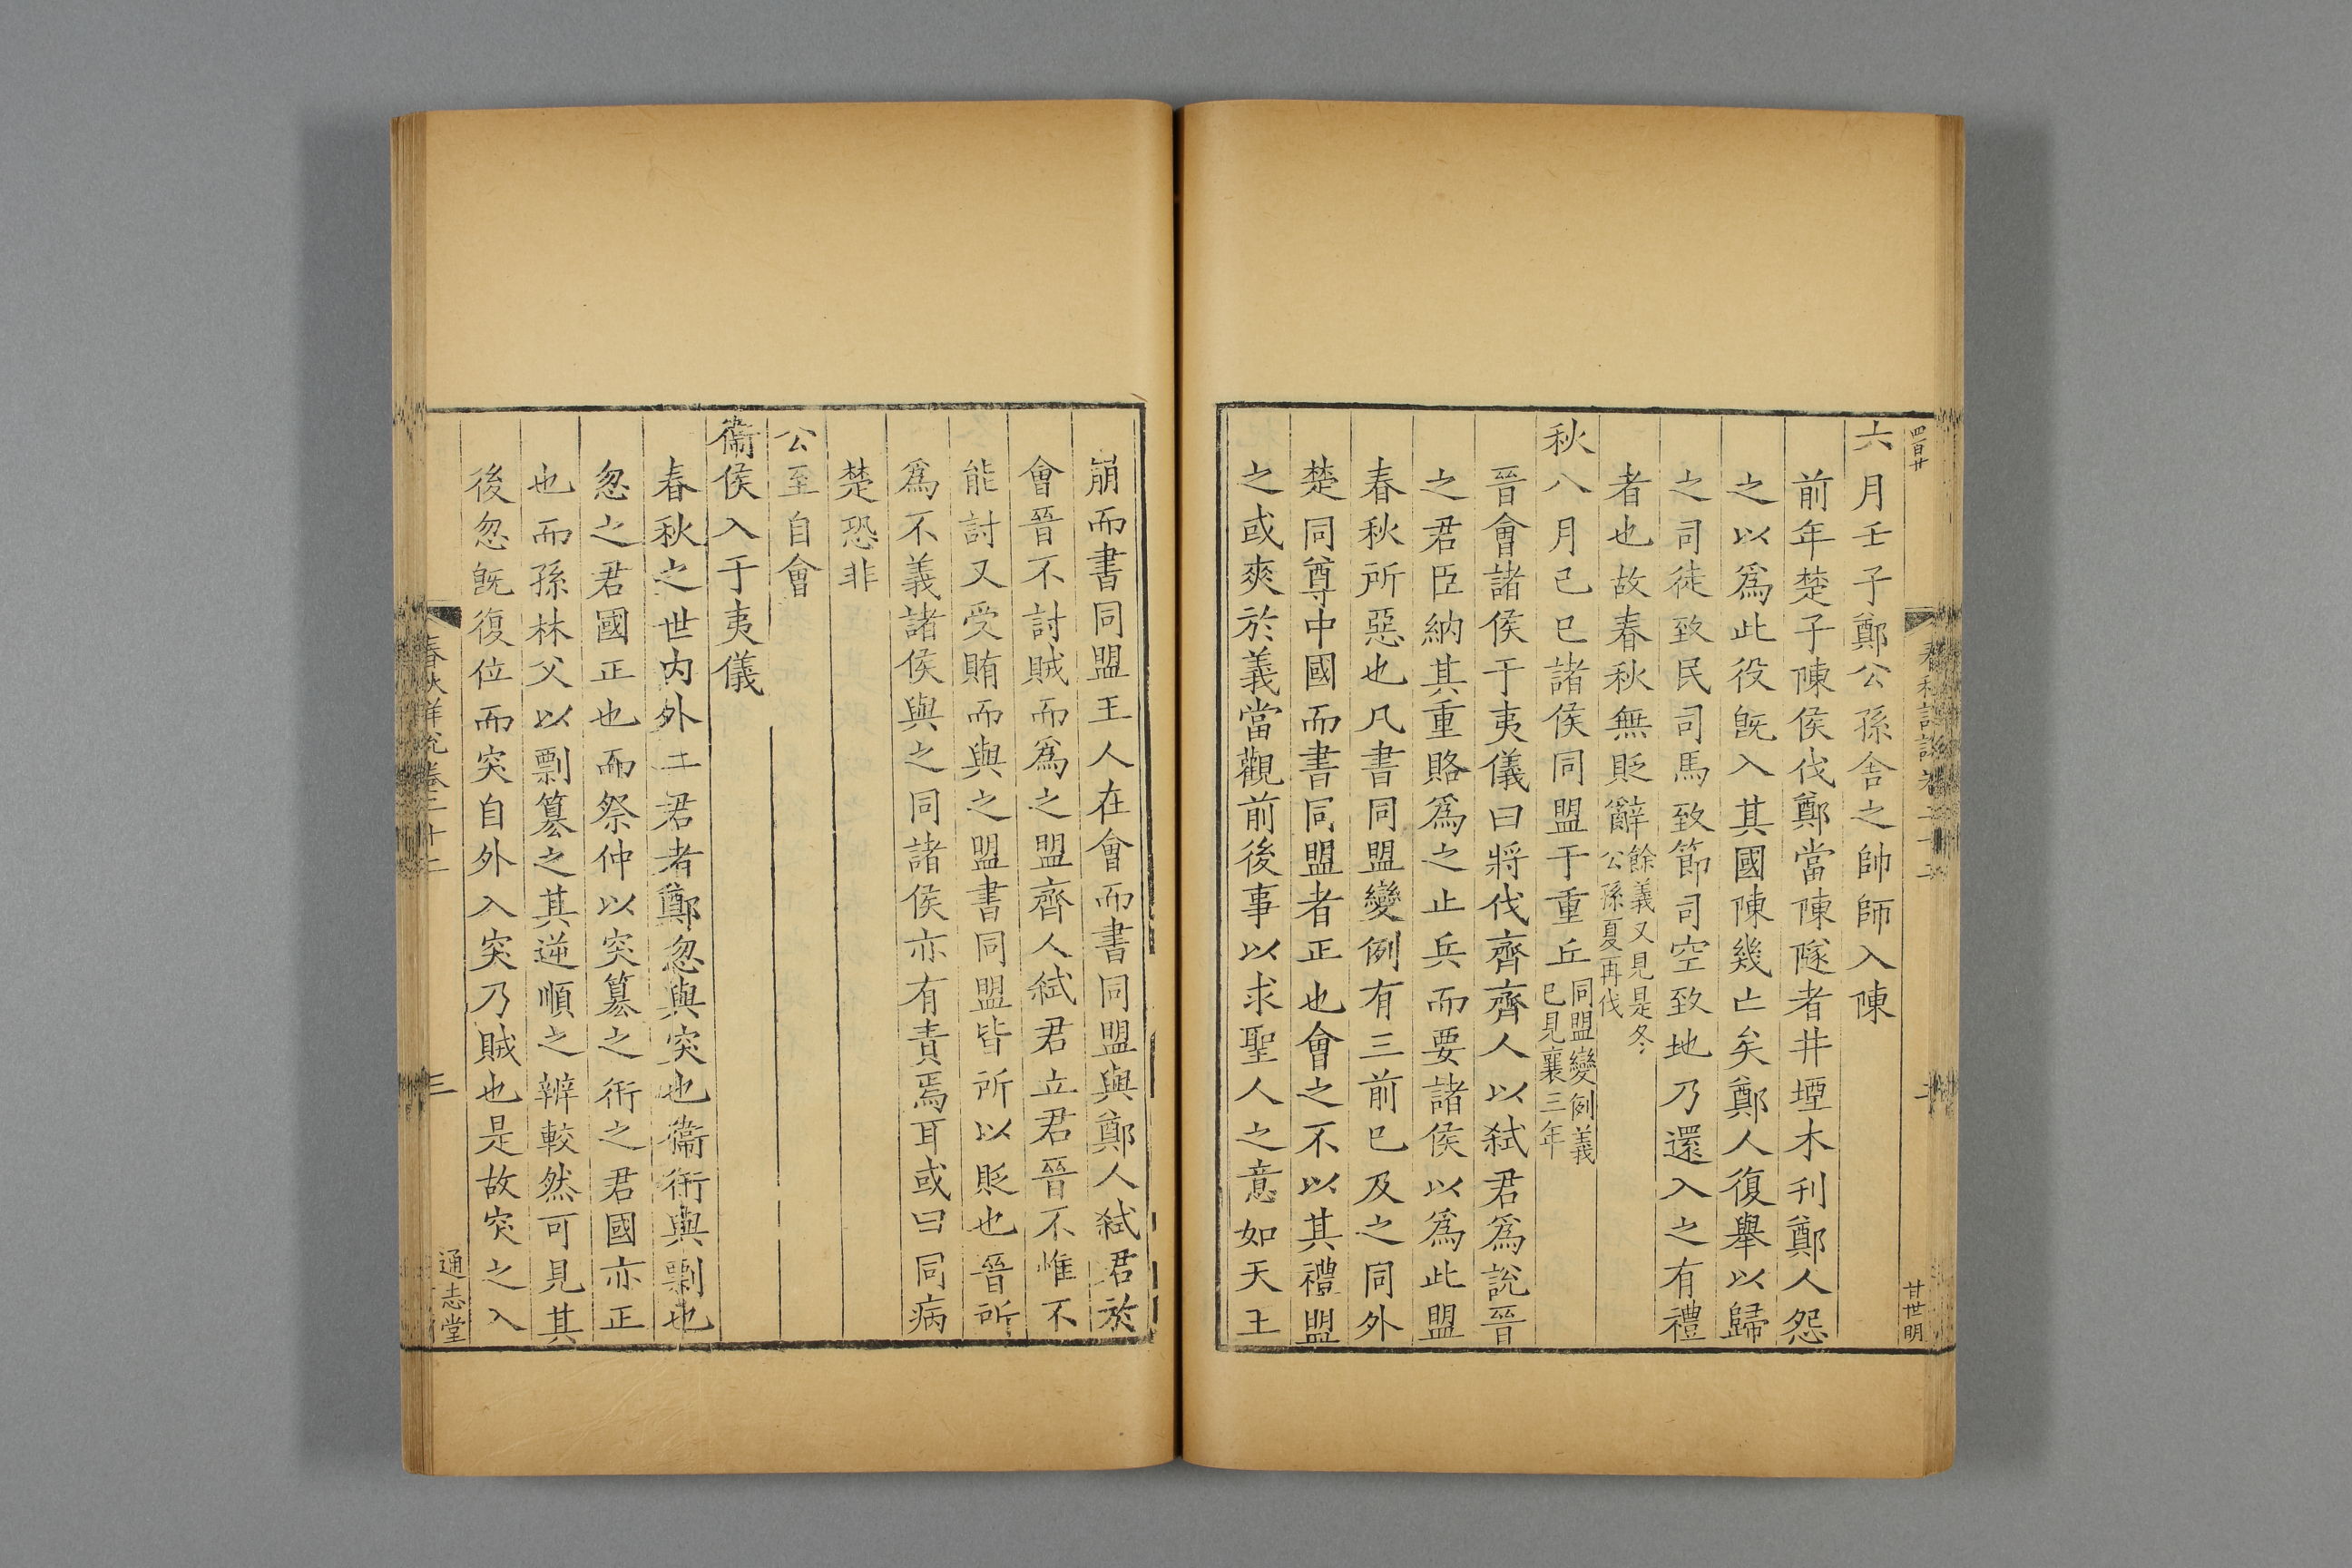 四百廿
甘世明
六月壬子鄭公孫舍之帥師入陳
前年楚子陳侯伐鄭當陳隧者井堙木刊鄭人怨
之以爲此役旣入其國陳幾亡矣鄭人復舉以歸
之司徒致民司馬致節司空致地乃還入之有禮
者也故春秋無貶辭餘義又見是冬
公孫夏再伐
秋八月己巳諸侯同盟于重丘同盟變例義
已見襄三年
晉會諸侯于夷儀曰將伐齊齊人以弑君爲說晉
之君臣納其重賂爲之止兵而要諸侯以爲此盟
春秋所惡也凡書同盟變例有三前已及之同外
楚同尊中國而書同盟者正也會之不以其禮盟
之或爽於義當觀前後事以求聖人之意如天王
崩而書同盟王人在會而書同盟與鄭人弑君於
會晉不討賊而爲之盟齊人弑君立君晉不惟不
能討又受賄而與之盟書同盟皆所以貶也晉所
爲不義諸侯與之同諸侯亦有責焉耳或曰同病
楚恐非
公至自會
衞侯入于夷儀
春秋之世内外二君者鄭忽與突也衞衎與剽也
忽之君國正也而祭仲以突簒之衎之君國亦正
也而孫林父以剽簒之其逆順之辨較然可見其
後忽旣復位而突自外入突乃賊也是故突之入
春秋詳說卷二十二
三
通志堂